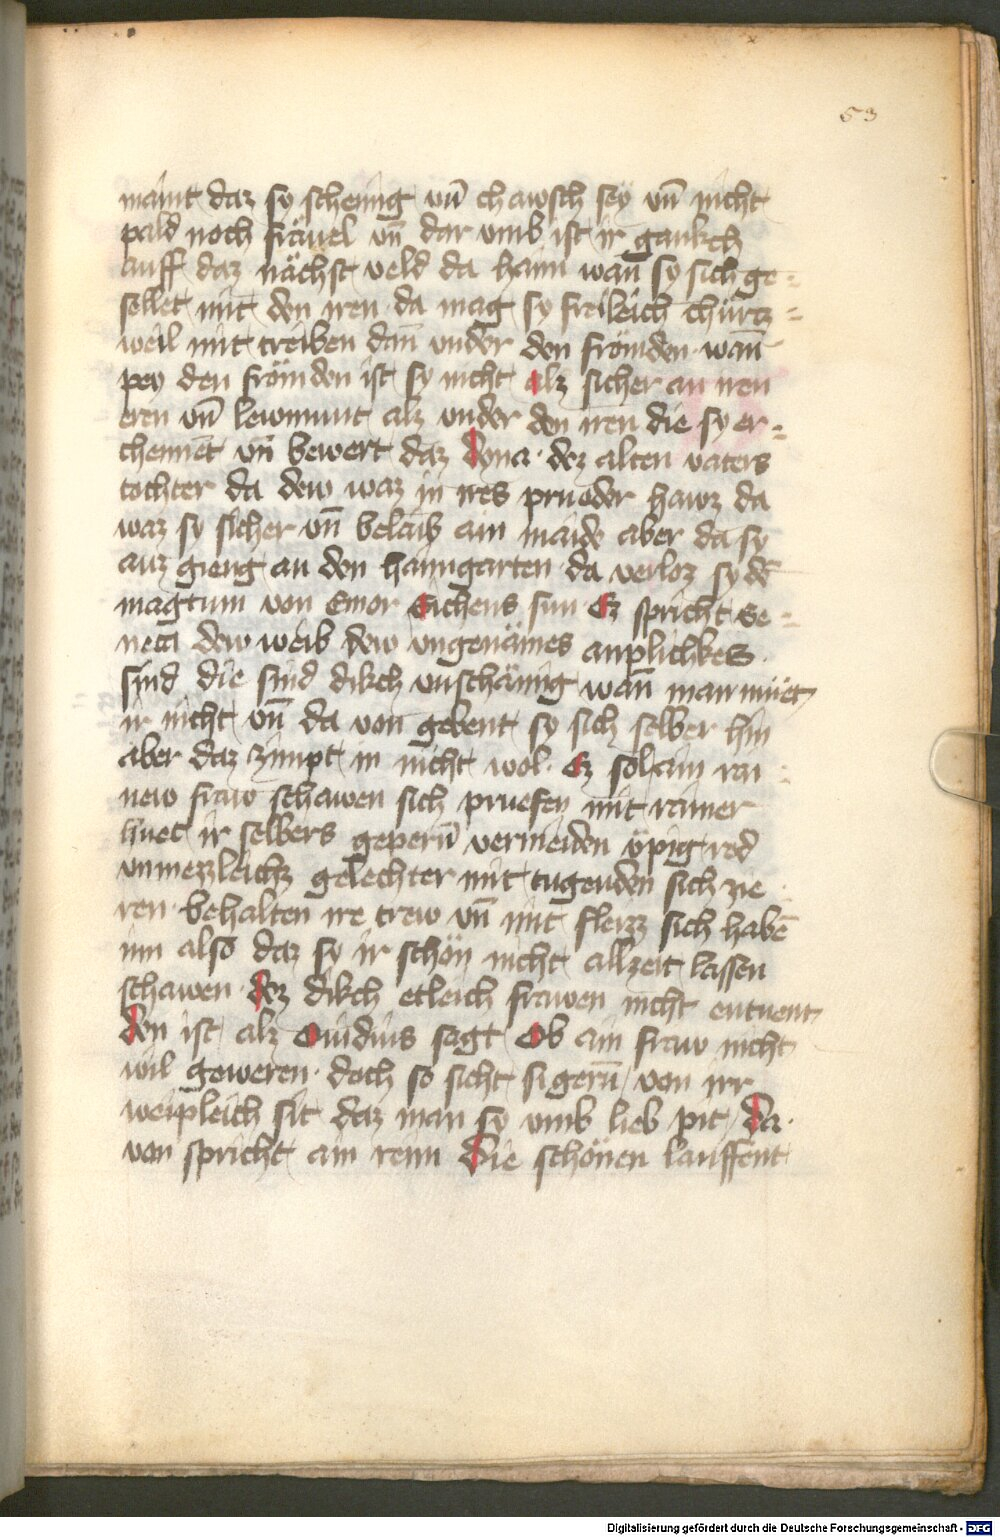 53
maint daz sy schemig vn̄ chawsch sey vn̄ nicht
pald noch frävel vn̄ dar vmb ist ir gankch
auff daz nächst veld da haim wan̄ sy sich ge-
sellet mit den iren da mag sy freileich chürcz-
weil mit treiben dan̄ vnder den frömden wan̄
pey den frömden ist sy nicht alz sicher an iren
eren vn̄ lewmunt alz vnder den iren die sy er-
chennet vn̄ bewert daz dyna dez alten vaters
tochter da dew waz in ires prueder hawz da
waz sy sicher vn̄ belaib ain maide aber da sy
auz gieng an den haimgarten da verloz sy dē
magtum von Emor Sichens sun Ez spricht Se-
neca dew weib dew vngenämes anplickes
sind die sind dikch vnschämig wan̄ man müet
ir nicht vn̄ da von gebent sy sich selber hin
aber daz zimpt in nicht wol Ez sol ain rai-
new fraw schawen sich pruefen mit rainer
huet ir selbers geperū vermeiden üpig red
vnmezzleichz gelechter mit tugenden sich zie-
ren behalten ire trew vn̄ mit fleizz sich habē
inn also daz sy ir schön nicht allzeit lassen
schawen dez dikch etleich frawen nicht entuent
den ist alz Ouidius sagt Ob ain fraw nicht
wil geweren doch so sicht si gerū von irr
weipleich sit daz man sy vmb lieb pit da
von spricht ain reim die schönen lauffent
Digitalisierung gefördert durch die Deutsche Forschungsgemeinschaft - DFG